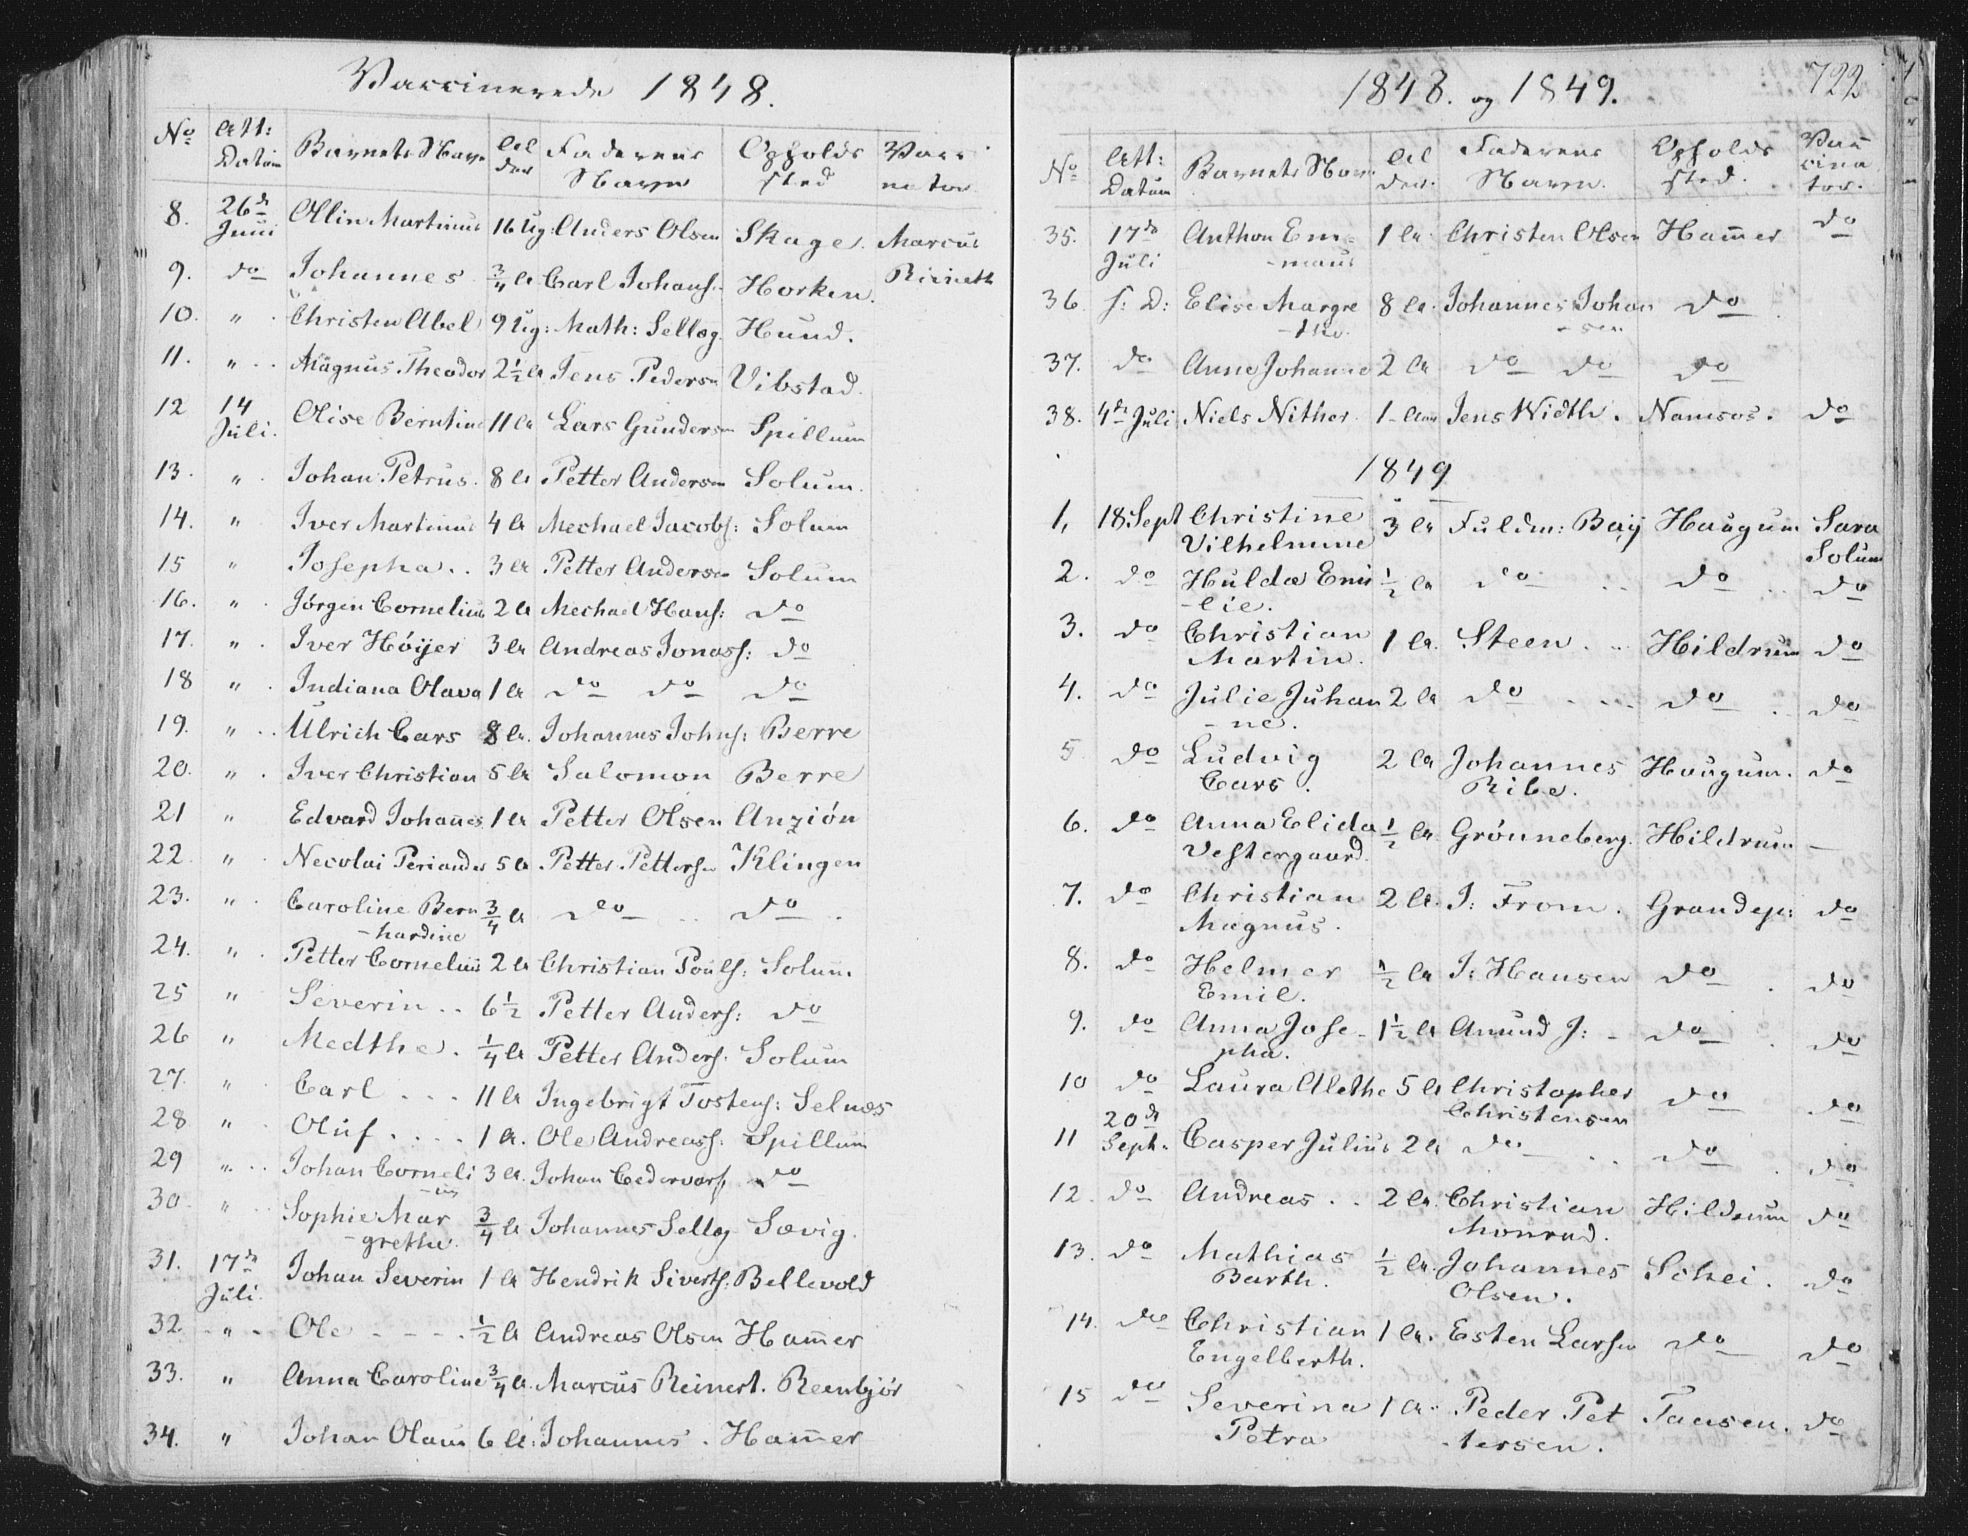 Vaccinerede 1848.
No Att: Datum Barnets Navn Alder Faderens Navn Opholdssted Vaccinator
8. 26de Juni Olin Martinus 16 Ug: Anders Olsen Skage. Marcus Reineth
9. do Johannes 3/4 A Carl Johans. Horken.
10. " Christen Abel 9 Ug: Math: Sellæg Hund.
11. " Magnus Theodor 2 1/2 A Jens Pedersn Vibstad.
12 14 Juli. Olise Berntine 11 A Lars Gundersn Spillum
13. " Johan Petrus. 8 A Petter Andersn Solum.
14. " Iver Martinus 4 A Mechael Jacobs: Solum
15 " Josepha.. 3 A Petter Andersen Solum
16. " Jørgen Cornelius 2 A Mechael Hans: do
17. " Iver Höyer 3 A Andreas Jonass: do
18 " Indiana Olava 1 A do do do
19. " Ulrich Lars 8 A. Johannes Johns: Berre
20. " Iver Christian 5 A Salomon Berre
21 " Edvard Johannes 1 A Petter Olsen Anzión
22. " Necolai Periander 5 A Petter Petterse Klingen
23. " Caroline Bern-hardine 3/4 A do do
24. " Petter Cornelius 2 A Christian Pouls: Solum.
25 " Severin.. 6 1/2 Petter Anders: do
26 " Medthe. 1/4 A Petter Anders. Solum
27. " Carl ... 11 A Ingebrigt Tostens: Selnæs
28 " Oluf .... 1 A. Ole Andreass: Spillum
29 " Johan Corneli-us 3 A. Johan Cedervars do
30 " Sophie Mar-grethe. 3/4 A Johannes Selleg Sævig.
31. 17de Juli. Johan Severin 1 A Hendrik Siverts: Bellevold
32. " Ole - - - - 1/2 A Andreas Olsen Hammer
33. " Anna Caroline 3/4 A. Marcus Reinert. Reenbjör
34. " Johan Olaus 6 A: Johannes. Hammer
1848. og 1849. 722
No Att: Datum Barnets Navn Alder. Faderens Navn. Opholdssted. Vaccinator.
35. 17de Juli Anthon Em-maus 1 A. Christen Olsen Hammer do
36 s: D: Elise Margre-the. 8 A. Johannes Johan-sen do
37. do Anne Johanne 2 A do do do
38. 4de Juli Niels Nither. 1 Aar Jens Width. Namsos. do
1849
1, 18 Sept Christine Vilhelmine 3 A Fuldm: Bay Haugum Sara Solum
2. do Hulda Emi-lie. 1/2 A do .. do .. do
3. do Christian Martin. 1 A. Steen. .. Hildrum do
4. do Julie Juhan-ne. 2 A do .... do .. do
5 do Ludvig Lars. 2 A Johannes Ribe. Haugum. do
6. do Anna Elida Vestergaard. 1/2 A. Grönneberg. Hildrum —
7. do Christian Magnus. 2 A. J: From. Grandep: do
8. do Helmer Emil. 1/2 A J: Hansen do . do
9. do Anna Jose-pha. 1 1/2 A Amund J: - do . do
10 do Laura Alethe 5 A Christopher Christensen do do
11 20de Sept. Casper Julius 2 A do .. do . do
12. do Andreas .. 2 A. Christian Monrad. Hildrum do
13. do Mathias Barth. 1/2 A. Johannes Olsen. Schei. do
14. do Christian Engelberth. 1 A. Esten Larsen do do
15 do Severina Petra 1 A. Peder Pet-tersen. Faasen. do